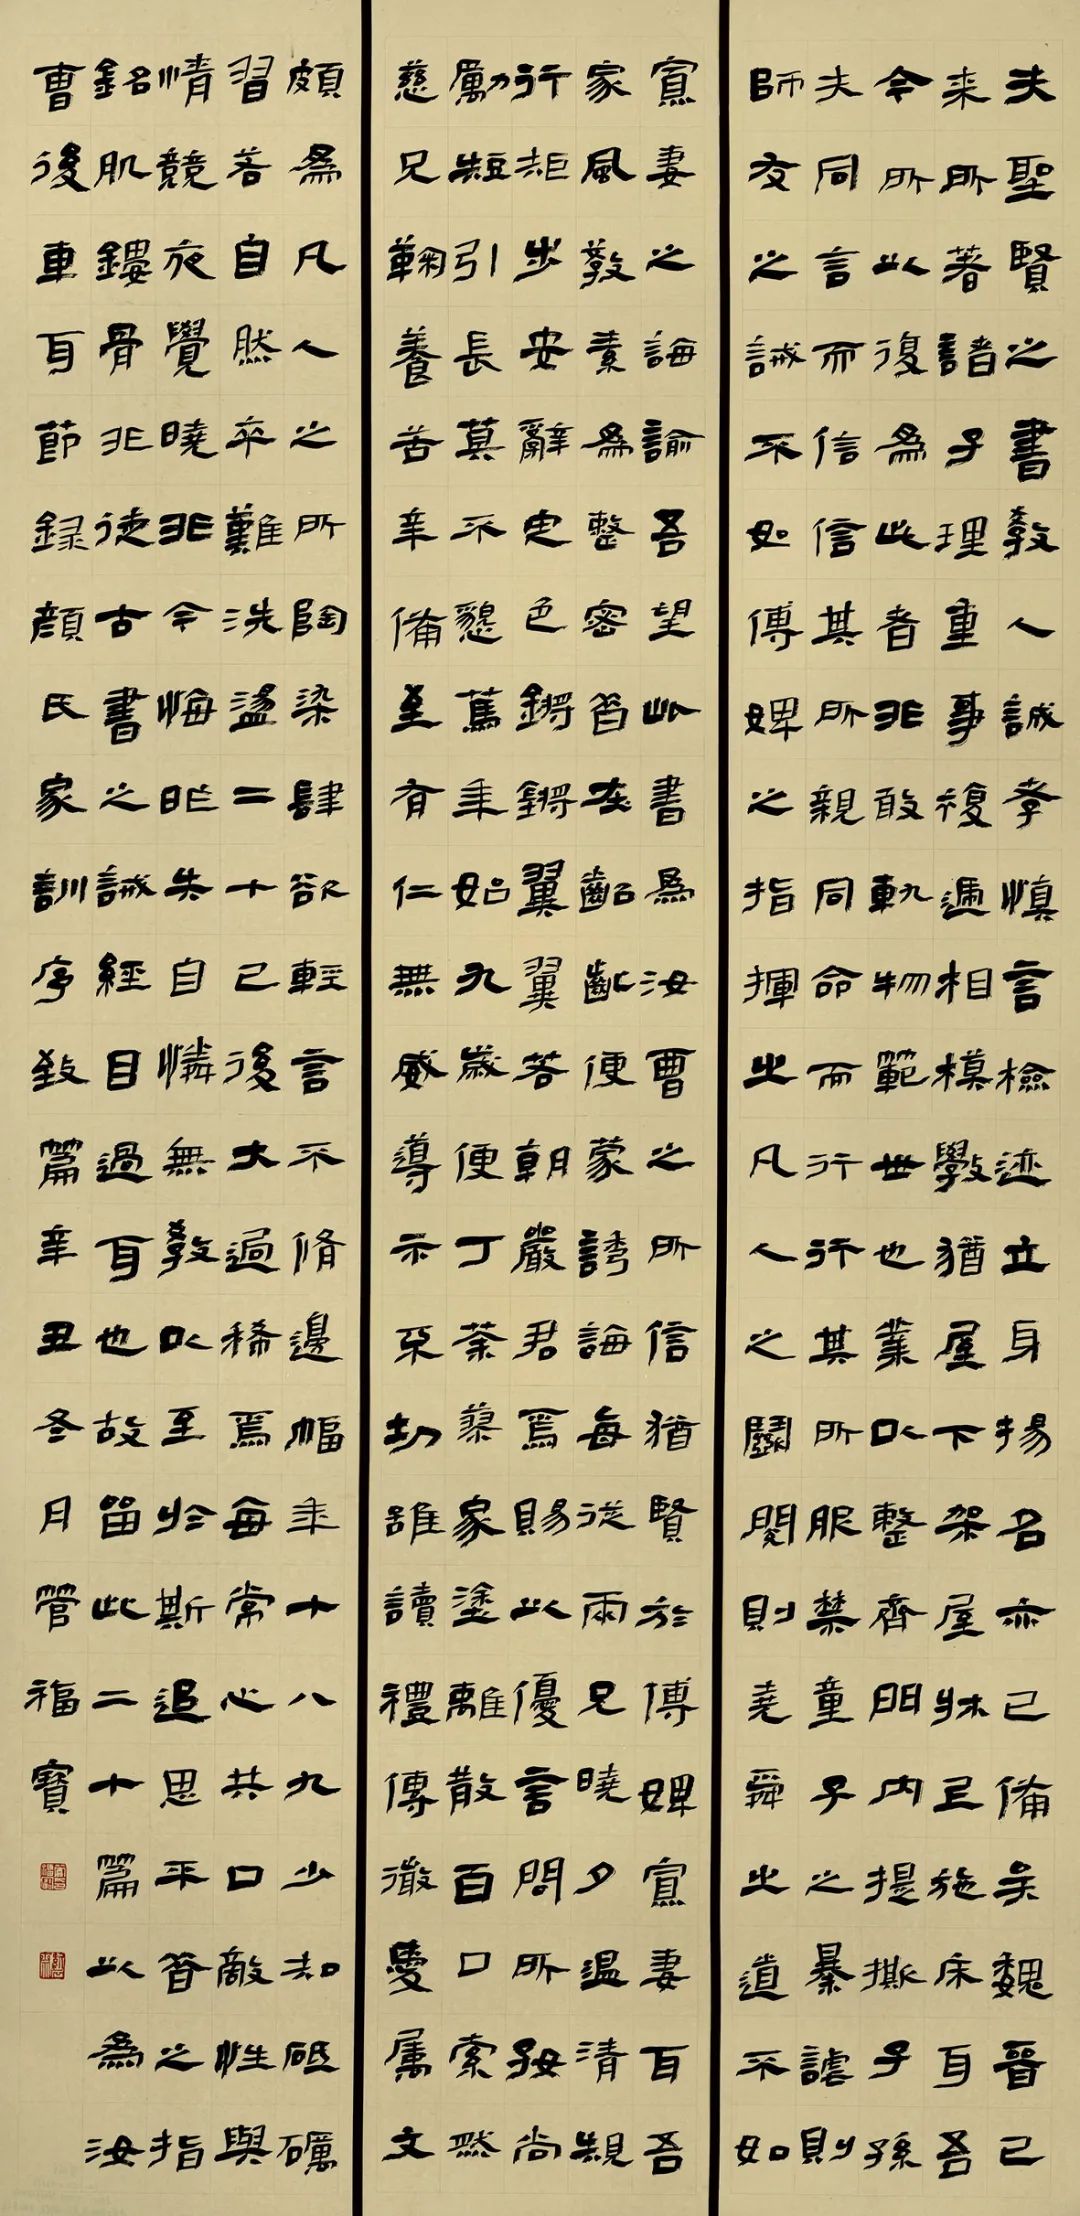 夫聖賢之書教人誠孝慎言檢迹立身揚名亦已備矣魏晉已
来所著諸子理重事複遞相模斆猶屋下架屋牀上施床耳吾
今所以復為此者非敢軌物範世也業以整齊門內提撕子孫
夫同言而信信其所親同命而行行其所服禁童子之暴謔則
師友之誡不如傅婢之指揮止凡人之鬪鬩則堯舜之道不如
寡妻之誨諭吾望此書為汝曹之所信猶賢於傅婢寡妻耳吾
家風教素為整密昔在齠齔便蒙誘誨每從兩兄曉夕溫清規
行矩步安辭定色鏘鏘翼翼若朝嚴君焉賜以優言問所好尚
勵短引長莫不懇篤年始九歲便丁荼蓼家塗離散百口索然
慈兄鞠養苦辛備至有仁無威導示不切雖讀禮傳微愛屬文
頗為凡人之所陶染肆欲輕言不脩邊幅年十八九少知砥礪
習若自然卒難洗盪二十已後大過稀焉每常心共口敵性與
情競夜覺曉非今悔昨失自憐無教以至於斯追思平昔之指
銘肌鏤骨非徒古書之誡經目過耳也故留此二十篇以為汝
曹後車耳節録顏氏家訓序致篇辛丑冬月管福寶